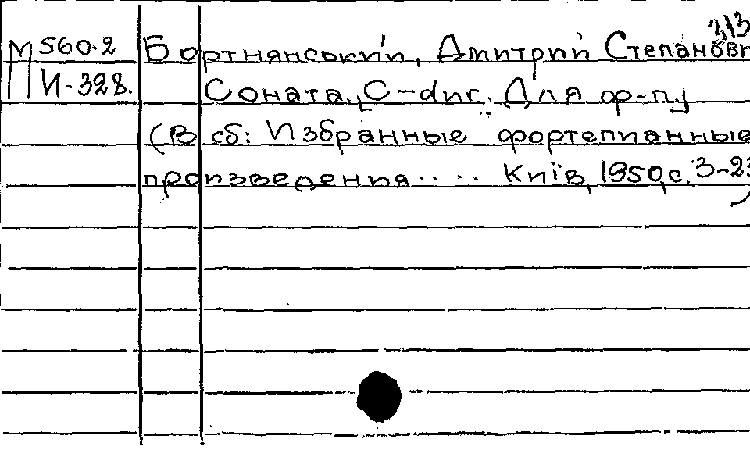 313
М 560.2 Бортнянський, Дмитрий Степанови
И-328. Соната, C-dur. Для ф-п.
(В сб: Избранные фортепианные
произведения.... Київ, 1950, с. 3-23